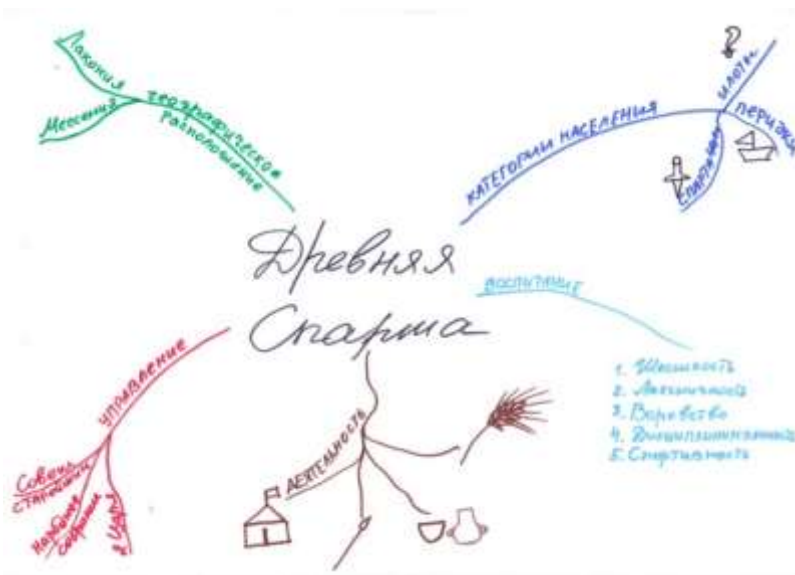 Древняя
Спарта
географическое
расположение
Лакония
Мессения
КАТЕГОРИИ НАСЕЛЕНИЯ
ИЛОТЫ
ПЕРИЭКИ
СПАРТАНЦЫ
ВОСПИТАНИЕ
2. Лаконичность
3. Воровство
4. Дисциплинированность
5. Спортивность
ДЕЯТЕЛЬНОСТЬ
УПРАВЛЕНИЕ
Совет
старейшин
народное
собрание
2 царя